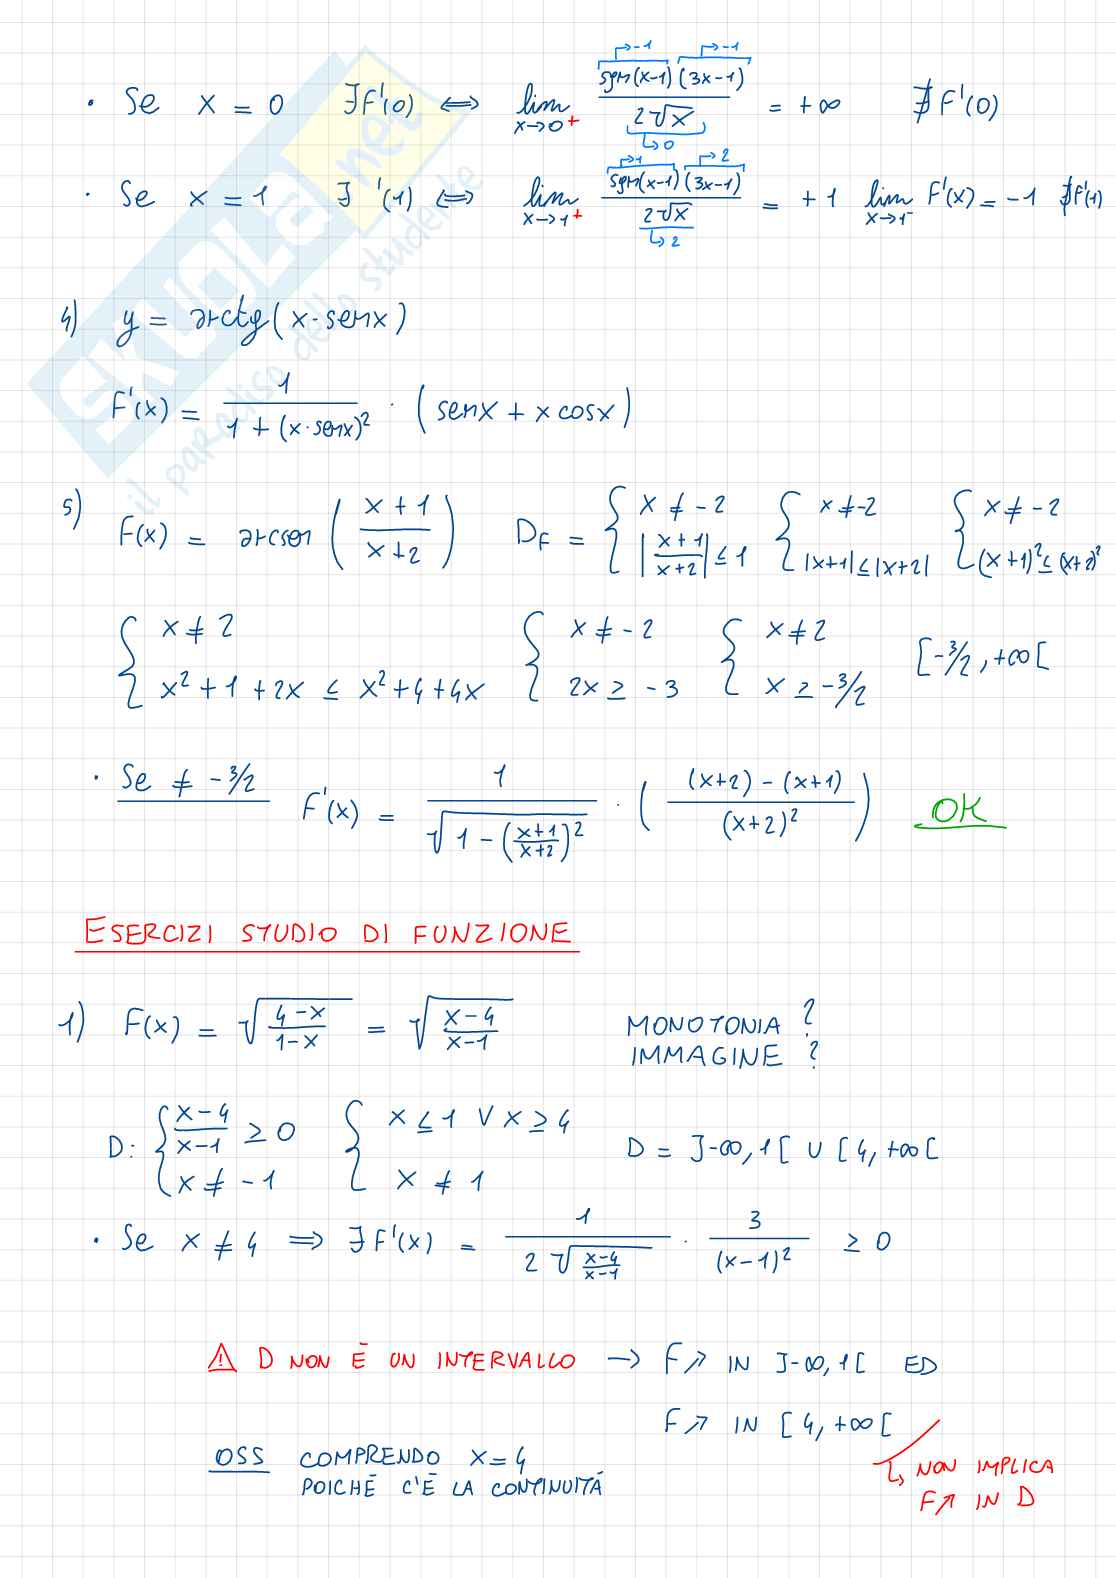 • Se x = 0 ∃F'(0) ⟺ lim x→0+ sgn(x-1) (3x-1) / 2√x = +∞ ∄ F'(0)
→-1 →-1 ↳0
• Se x = 1 ∃ '(1) ⟺ lim x→1+ sgn(x-1) (3x-1) / 2√x = +1 lim x→1⁻ F'(x) = -1 ∄F'(1)
→1 → 2 ↳2
4) y = arctg(x·senx)
F'(x) = 1 / 1 + (x·senx)² · (senx + x cosx)
5) F(x) = arcsen (x+1 / x+2) D_F = { x ≠ -2 |x+1 / x+2| ≤ 1 { x ≠ -2 |x+1| ≤ |x+2| { x ≠ -2 (x+1)² ≤ (x+2)²
{ x ≠ 2 x² + 1 + 2x ≤ x² + 4 + 4x { x ≠ -2 2x ≥ -3 { x ≠ 2 x ≥ -3/2 [-3/2, +∞[
• Se ≠ -3/2 F'(x) = 1 / √(1 - (x+1 / x+2)²) · ((x+2) - (x+1) / (x+2)²) OK
ESERCIZI STUDIO DI FUNZIONE
1) F(x) = √(4-x / 1-x) = √(x-4 / x-1) MONOTONIA ?
IMMAGINE ?
D: { x-4 / x-1 ≥ 0 x ≠ -1 { x ≤ 1 ∨ x ≥ 4 x ≠ 1 D = ]-∞, 1[ ∪ [4, +∞[
• Se x ≠ 4 ⟹ ∃ F'(x) = 1 / 2√(x-4 / x-1) · 3 / (x-1)² ≥ 0
⚠ D NON È UN INTERVALLO → F↗ IN ]-∞, 1[ ED
F↗ IN [4, +∞[
OSS COMPRENDO X=4
POICHÈ C'È LA CONTINUITÁ
↳ NON IMPLICA
F↗ IN D
SKUOLA.net
il paradiso dello studente